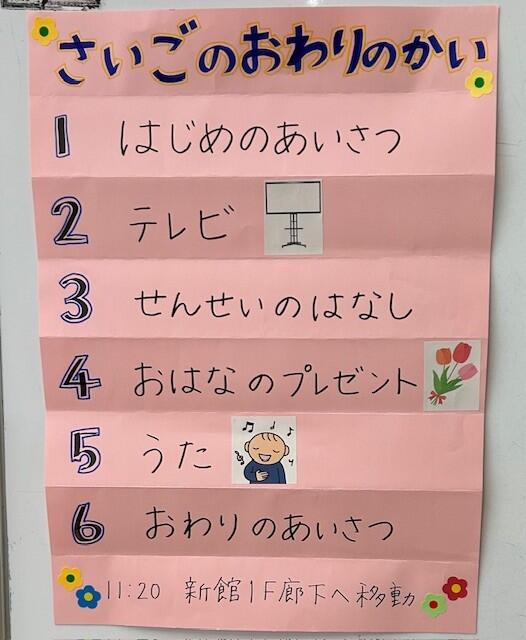 さいごのおわりのかい
1 はじめのあいさつ
2 テレビ
3 せんせいのはなし
4 おはなのプレゼント
5 うた
6 おわりのあいさつ
11:20 新館1F廊下へ移動